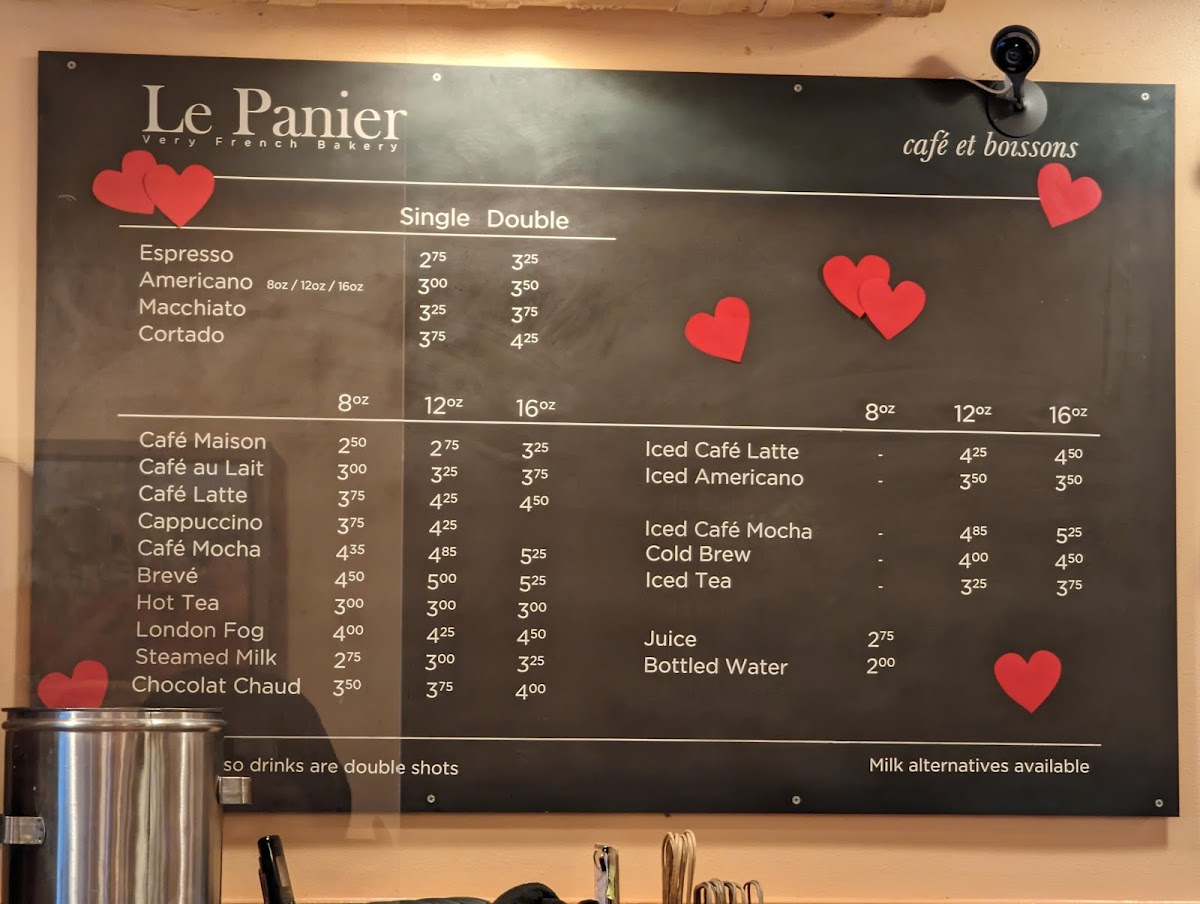 Le Panier
Very French Bakery
café et boissons
Single Double
Espresso 2⁷⁵ 3²⁵
Americano 8oz / 12oz / 16oz 3⁰⁰ 3⁵⁰
Macchiato 3²⁵ 3⁷⁵
Cortado 3⁷⁵ 4²⁵
8oz 12oz 16oz
Café Maison 2⁵⁰ 2⁷⁵ 3²⁵
Café au Lait 3⁰⁰ 3²⁵ 3⁷⁵
Café Latte 3⁷⁵ 4²⁵ 4⁵⁰
Cappuccino 3⁷⁵ 4²⁵
Café Mocha 4³⁵ 4⁸⁵ 5²⁵
Brevé 4⁵⁰ 5⁰⁰ 5²⁵
Hot Tea 3⁰⁰ 3⁰⁰ 3⁰⁰
London Fog 4⁰⁰ 4²⁵ 4⁵⁰
Steamed Milk 2⁷⁵ 3⁰⁰ 3²⁵
Chocolat Chaud 3⁵⁰ 3⁷⁵ 4⁰⁰
8oz 12oz 16oz
Iced Café Latte - 4²⁵ 4⁵⁰
Iced Americano - 3⁵⁰ 3⁵⁰
Iced Café Mocha - 4⁸⁵ 5²⁵
Cold Brew - 4⁰⁰ 4⁵⁰
Iced Tea - 3²⁵ 3⁷⁵
Juice 2⁷⁵
Bottled Water 2⁰⁰
so drinks are double shots
Milk alternatives available